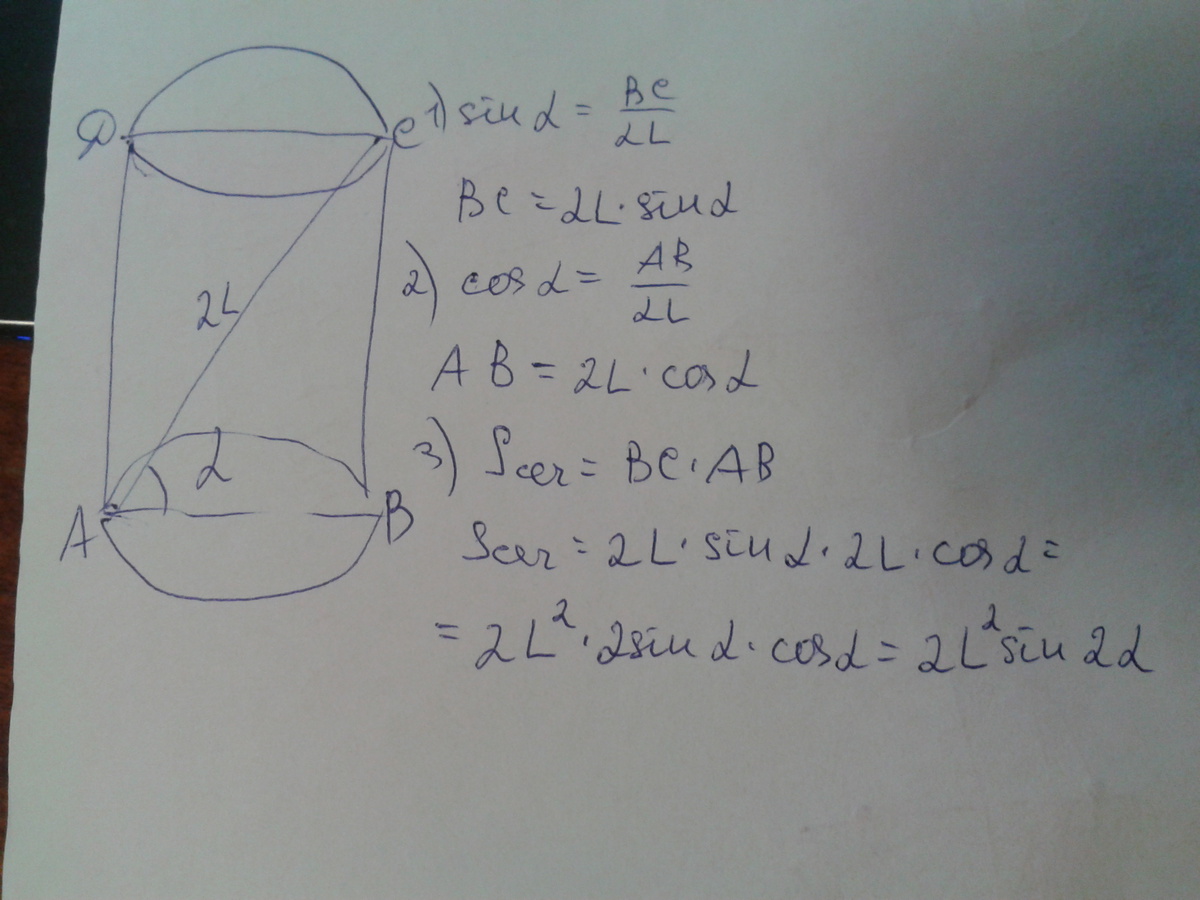 D
C
2L
α
A
B
1) sin α = BC/2L
BC = 2L · sin α
2) cos α = AB/2L
AB = 2L · cos α
3) Sсег = BC · AB
Sсег = 2L · sin α · 2L · cos α =
= 2L² · 2sin α · cos α = 2L² sin 2α